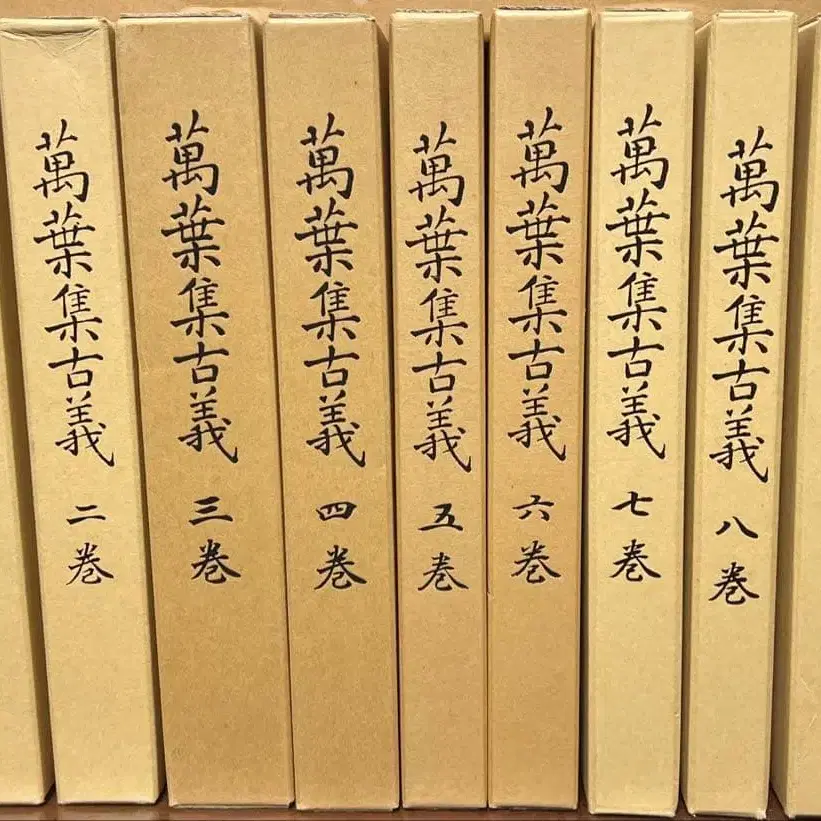 萬葉集古義 二巻
萬葉集古義 三巻
萬葉集古義 四巻
萬葉集古義 五巻
萬葉集古義 六巻
萬葉集古義 七巻
萬葉集古義 八巻